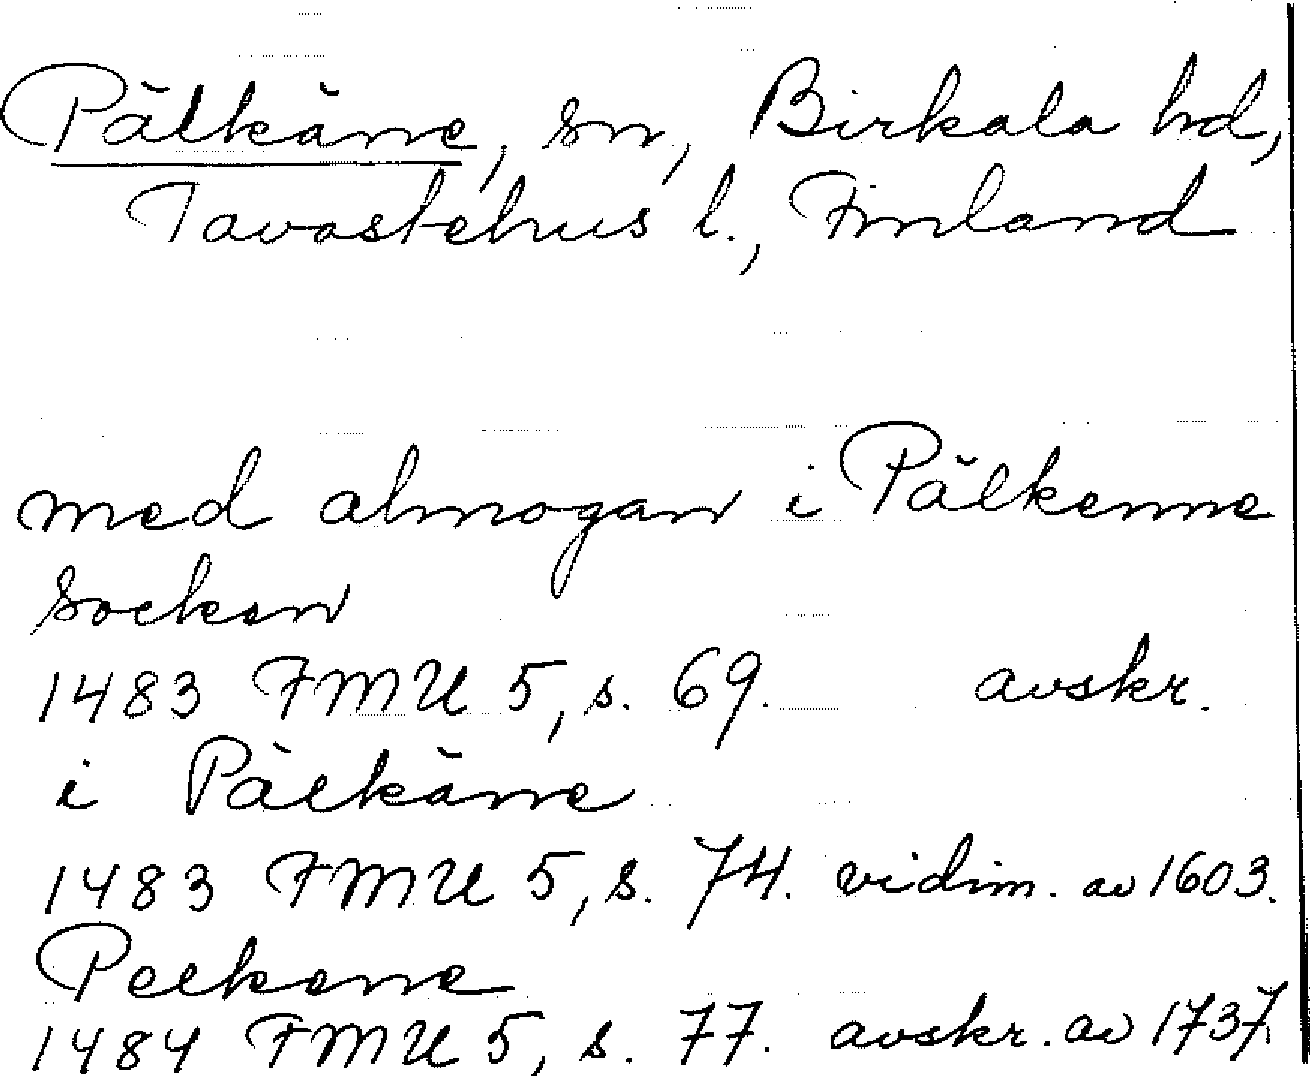 Pälkäne, sn, Birkala hd,
Tavastehus l., Finland
med almogan i Pälkenne
socken
1483 FMU 5, s. 69. avskr.
i Pälkäne
1483 FMU 5, s. 74. vidim. av 1603.
Pelkene
1484 FMU 5, s. 77. avskr. av 1737